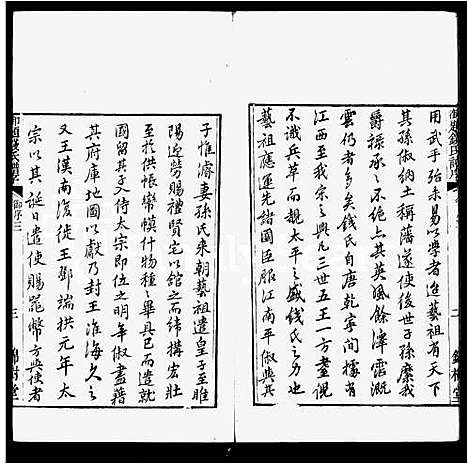 用武手弛未易以學者迨藝祖有天下
其孫俶納土稱藩遂使後子孫縻我
爵祿承承不絕上其英風餘澤霑溉
雲仍者多矣錢氏自唐乾寧間橫有
江西至我宗之興凡三世五王一方晝俔
不識兵革而親太平之盛錢氏與
藝祖應運先諸國臣服江南平俶與其
子惟濬妻孫氏來朝藝祖遣皇子至睢
陽迎勞賜禮賢宅以館之而締搆宏壯
至於供帳幃幙什物種種畢具已而遣就
國留其子入侍太宗即位之明年俶盡籍
其府庫地圖以獻乃封王淮海久之
又王漢南復徙王鄧端拱元年太
宗以其誕日遣使賜器幣方與使者
御題錢氏譜序
御序三
三
二
錦樹堂